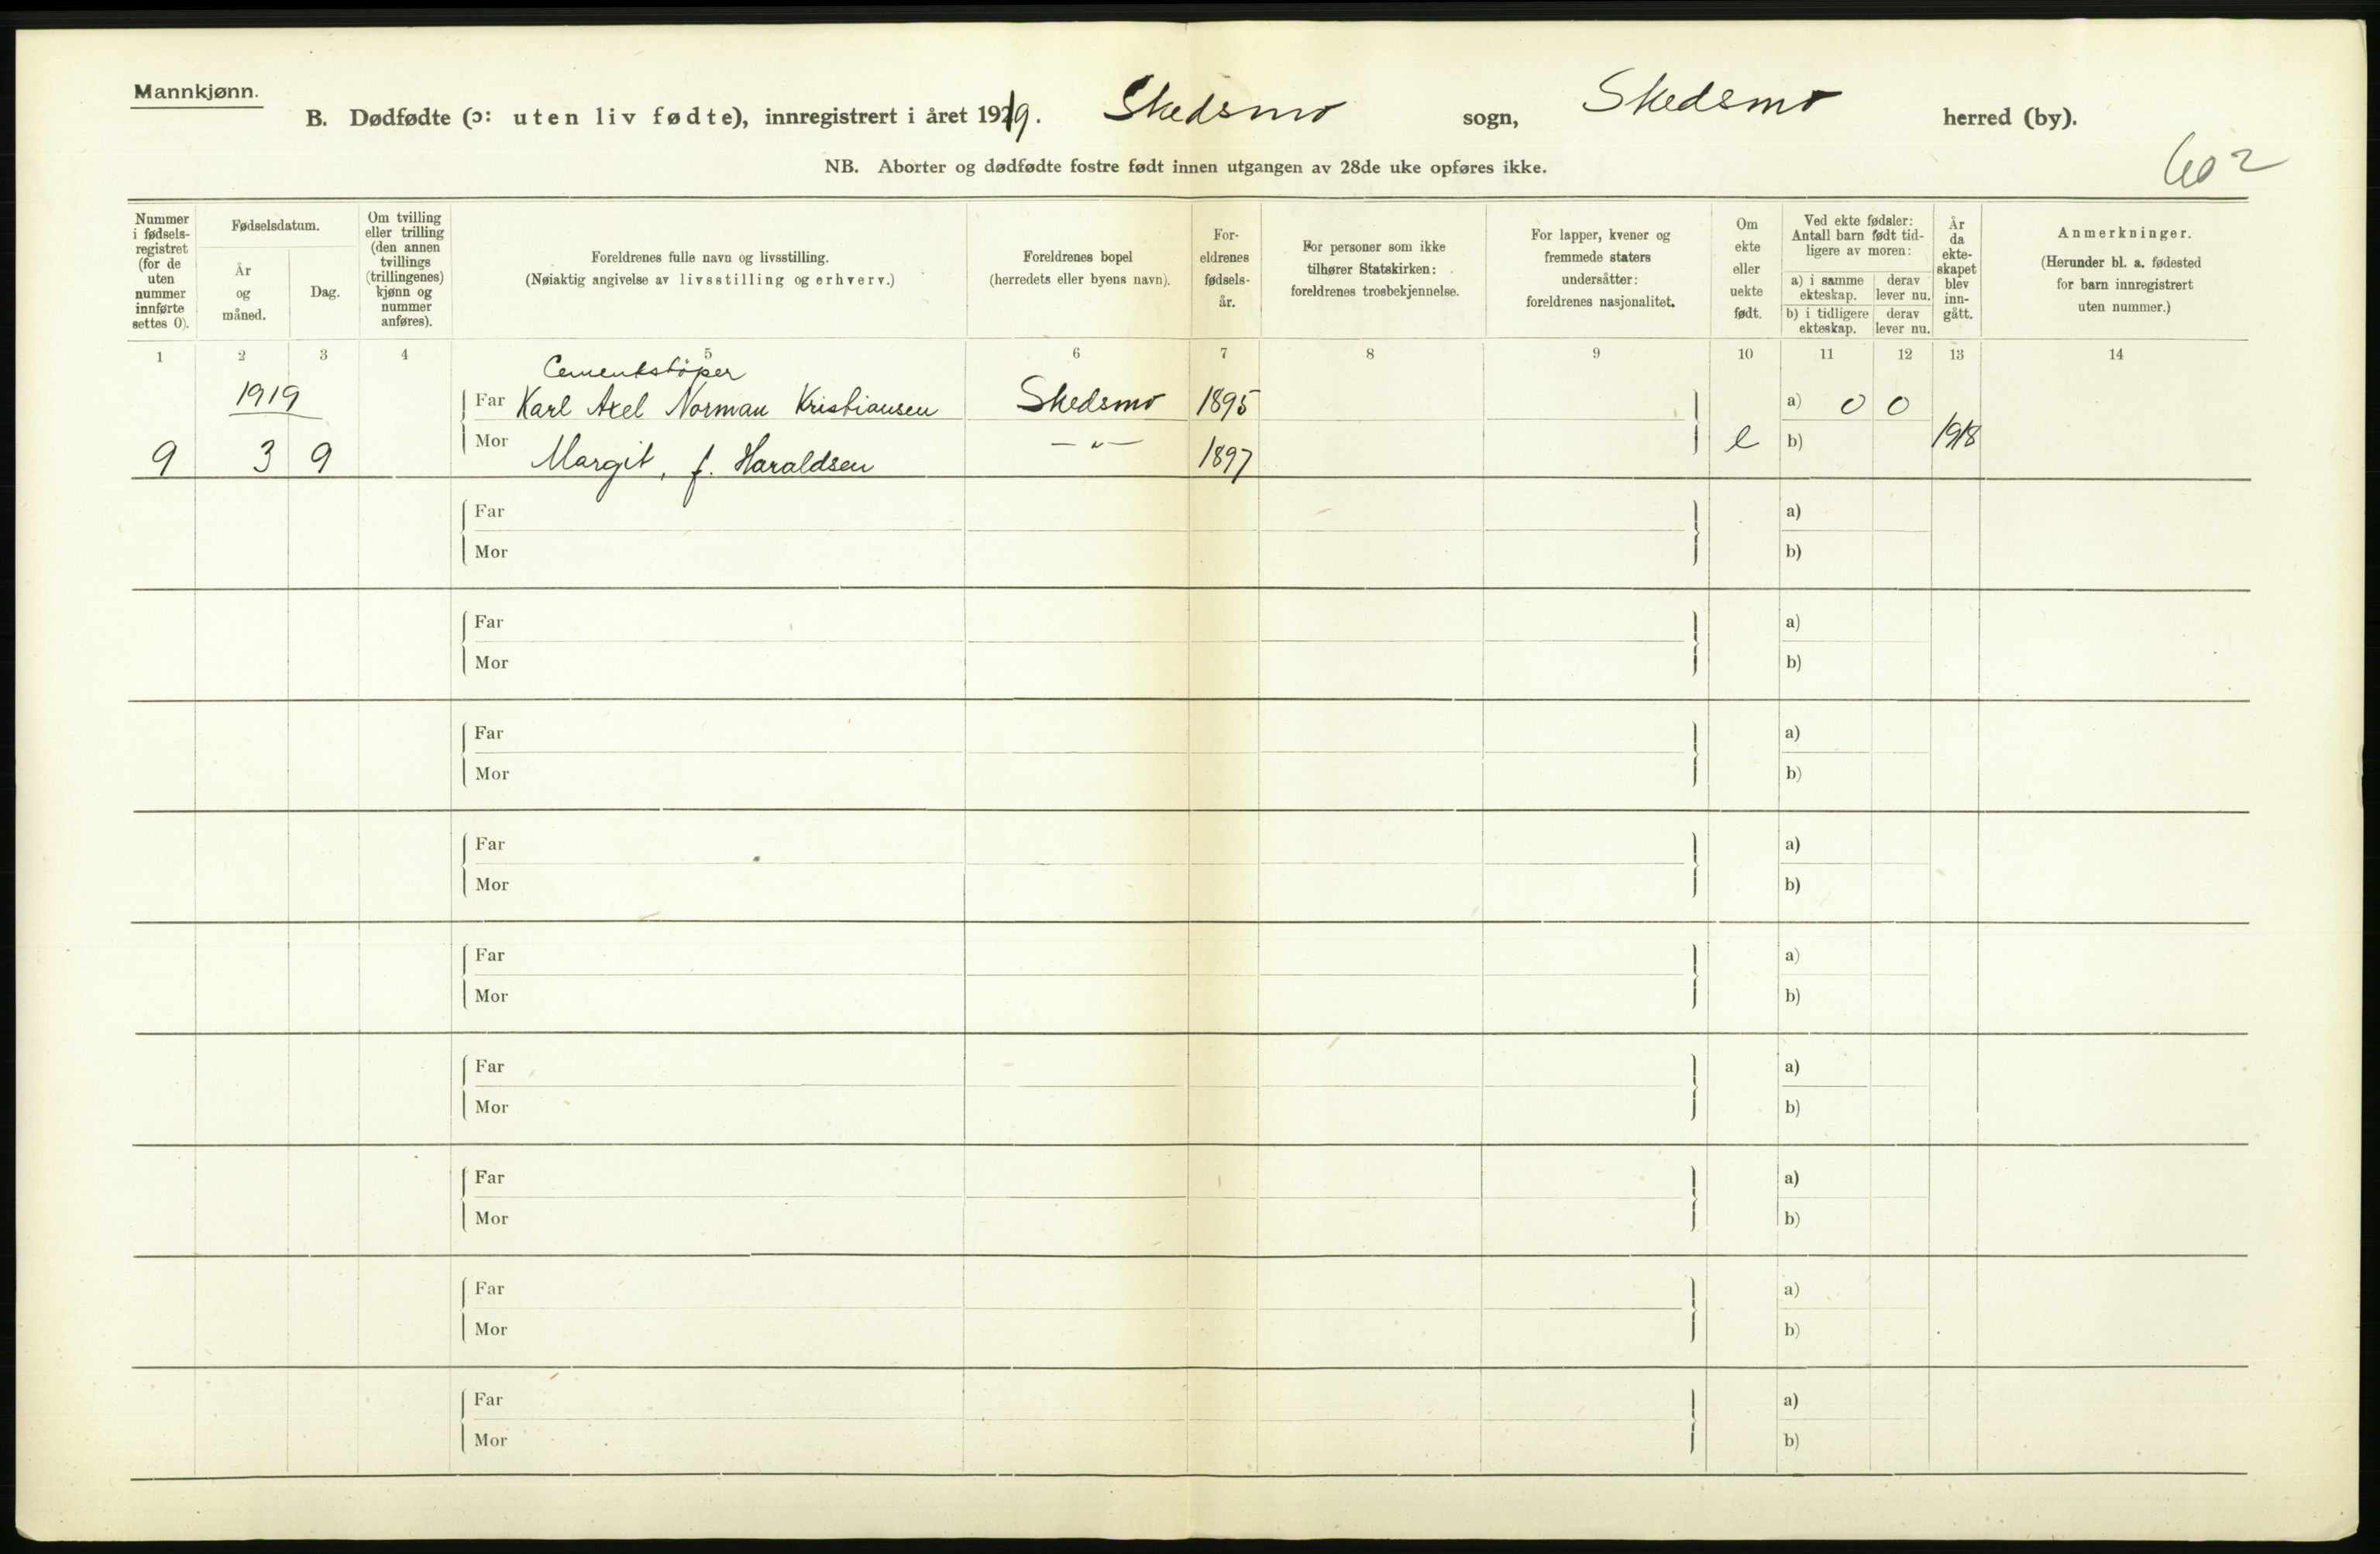 Mannkjønn.
B. Dødfødte (ɔ: uten liv fødte), innregistrert i året 1919. Skedsmo sogn, Skedsmo herred (by).
NB. Aborter og dødfødte fostre født innen utgangen av 28de uke opføres ikke.
602
Nummer
i fødsels-
registret
(for de
uten
nummer
innførte
settes 0).
Fødselsdatum.
År
og
måned.
Dag.
Om tvilling
eller trilling
(den annen
tvillings
(trillingenes)
kjønn og
nummer
anføres).
Foreldrenes fulle navn og livsstilling.
(Nøiaktig angivelse av livsstilling og erhverv.)
Foreldrenes bopel
(herredets eller byens navn).
For-
eldrenes
fødsels-
år.
For personer som ikke
tilhører Statskirken:
foreldrenes trosbekjennelse.
For lapper, kvener og
fremmede staters
undersåtter:
foreldrenes nasjonalitet.
Om
ekte
eller
uekte
født.
Ved ekte fødsler:
Antall barn født tid-
ligere av moren:
a) i samme
ekteskap.
derav
lever nu.
b) i tidligere
ekteskap.
derav
lever nu.
År
da
ekte-
skapet
blev
inn-
gått.
Anmerkninger.
(Herunder bl. a. fødested
for barn innregistrert
uten nummer.)
1 2 3 4 5 6 7 8 9 10 11 12 13 14
Cementstöper
1919 Far Karl Axel Norman Kristiansen Skedsmo 1895 a) 0 0
9 3 9 Mor Margit, f. Haraldsen — " — 1897 e b) 1918
Far a)
Mor b)
Far a)
Mor b)
Far a)
Mor b)
Far a)
Mor b)
Far a)
Mor b)
Far a)
Mor b)
Far a)
Mor b)
Far a)
Mor b)
Far a)
Mor b)